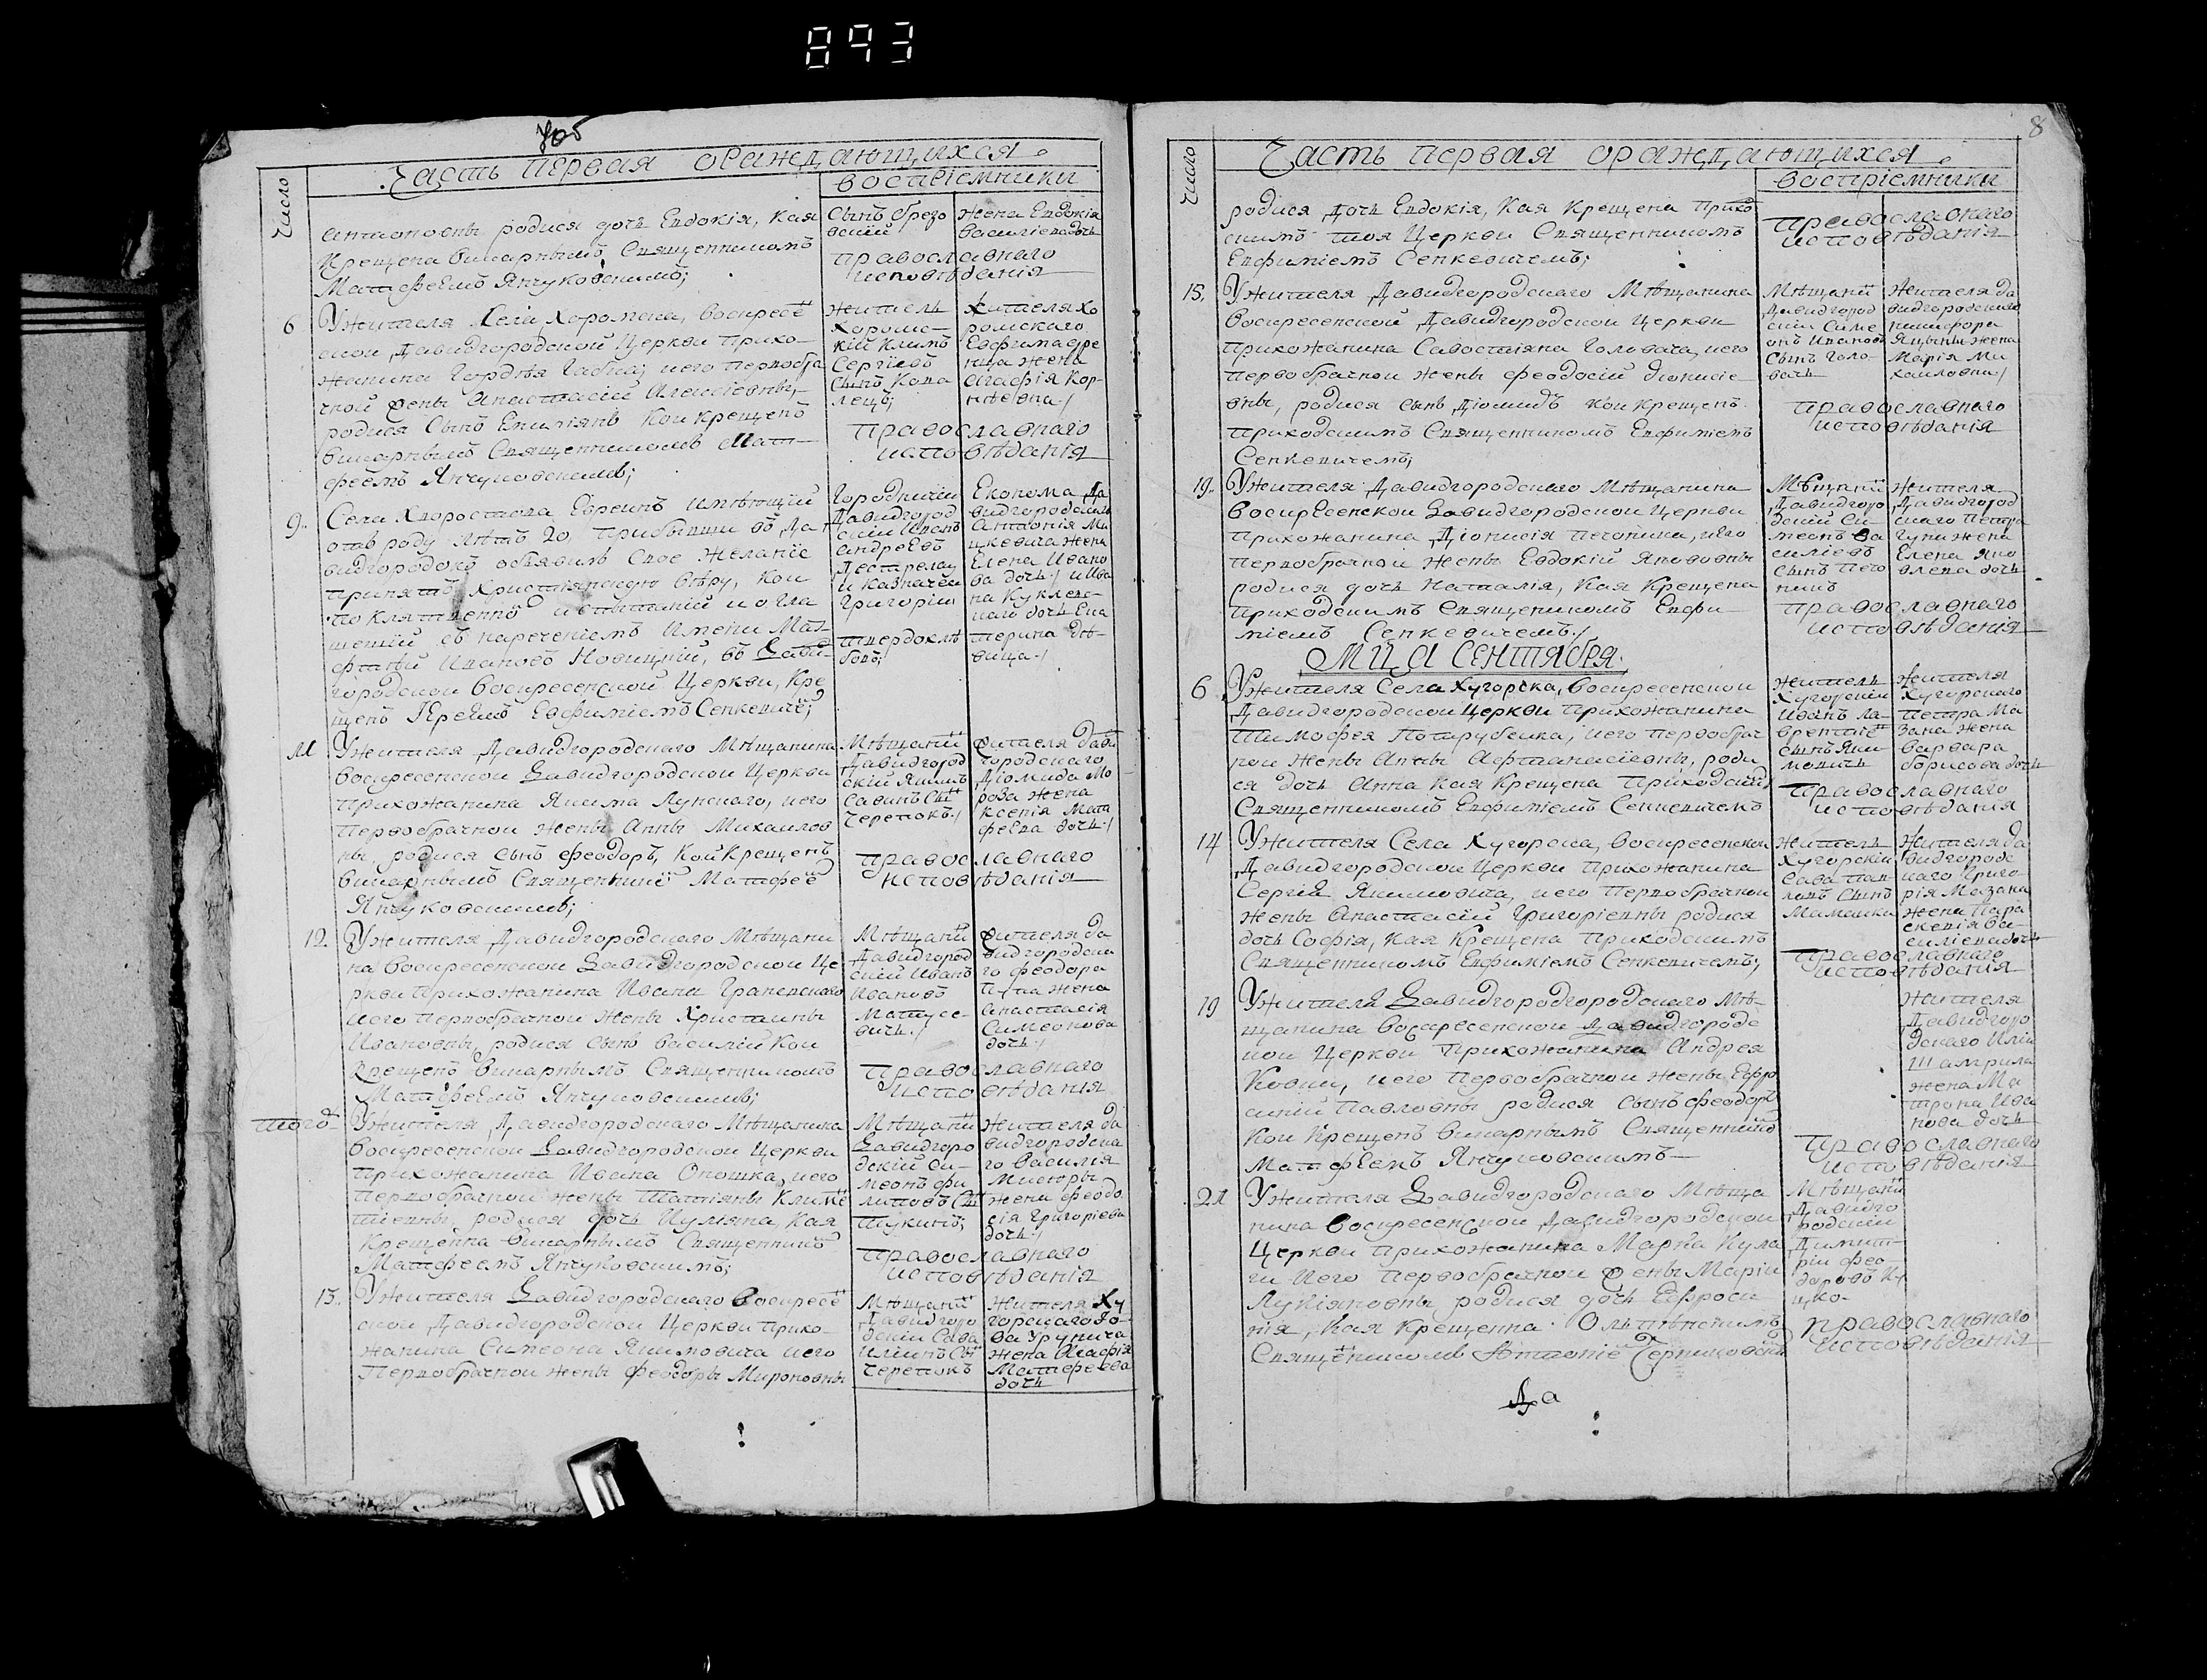 893
Часть первая ораждающихся
Число
воспріемники
антоновны родися дочь Евдокія, кая
крещена викарнымъ Священникомъ
Матфеемъ Янчуковскимъ;
Сынъ Брезо
вскій
жена Евдокія
Василіева дочь
православнаго
исповѣданія
6
Ужителя Села Хоромска, воскресе
ской Давидгородской Церкви прихо-
жанина Гордѣя Габца, иего первобра
чной жены Анастасіи Алексіевны,
родися сынъ Емиліянъ кои крещенъ
викарнымъ Священникомъ Мат-
феемъ Янчуковскимъ;
житель
Хоромс-
кій Климъ
Сергіевъ
сынъ Кова
лецъ;
жителя Хо
ромскаго
Евфима
жена
Агафія Кор-
нѣевна
православнаго
исповѣданія
9
Села Хворостова Евреинъ имѣющій
отъ роду лѣтъ 20, прибывши въ Да
видгородокъ объявилъ свое желаніе
принять христіянскую вѣру, кои
по клятвенно испытаніи и огла
шеніи съ нареченіемъ имени Мат
фтей Ивановъ Новицкій, въ Дави
городской Воскресенской Церкви, кре
щенъ Іереемъ Евфиміемъ Сенкевиче;
Городничіи
Давидгород
скіи Иванъ
Андреевъ
и казначеи
Григоріи
твердохлѣ
бовъ;
Економа Да
видгородскаго
Антонія Ми
цкевича жена
Елена Ивано
ва дочь и Ива
на
наго дочь Ека
терина дѣ-
вица
11
Ужителя Давидгородскаго Мѣщанина
воскресенской Давидгородской Церкви
прихожанина Якима Лунскаго, иего
первобрачной жены Анны Михаилов
ны, родися сынъ Феодоръ, кой крещенъ
викарнымъ Священникѡ Матфеѣ
Янчуковскимъ;
Мѣщанинъ
Давидгород
скій Якимъ
Савинъ Сынъ
Черепокъ
жителя Дави
городскаго
Діомида Мо
роза жена
Ксенія Мат
феева дочь
православнаго
исповѣданія
12
Ужителя Давидгородскаго Мѣщани
на воскресенской Давидгородской Це
ркви прихожанина Ивана Граневскаго
иего первобрачной жены Христины
Ивановны, родися сынъ Василій кои
крещенъ викарнымъ Священникомъ
Матфеемъ Янчуковскимъ;
Мѣщанинъ
Давидгород
скій Иванъ
Ивановъ
Матусе-
вичь
жителя Да
видгородска
го Феодора
жена
Анастасія
Симеонова
дочь
православнаго
исповѣданія
тогѡ
Ужителя Давидгородскаго Мѣщанина
воскресенской Давидгородской Церкви
прихожанина Ивана Опошка, иего
первобрачной жены Татіяны Климе
тіевны, родися дочь Иуліяна, кая
крещенна викарнымъ Священникѡ
Матфеемъ Янчуковскимъ;
Мѣщанинъ
Давидгоро
дскій Си-
меонъ Фи
липовъ Сынъ
Шукинъ;
жителя Да
видгородска
го Василія
Мисюры
жена Феодо
сія Григоріева
дочь
православнаго
исповѣданія
13
Ужителя Давидгородскаго воскресе
ской Давидгородской Церкви прихо
жанина Симеона Якимовича иего
первобрачной жены Феодоры Мироновны
Мѣщанинъ
Давидгоро
дскіи Сава
Иліинъ Сынъ
Черепокъ
жителя Ху
горскаго
жена Агафія
Матфеева
дочь
8
Часть первая ораждающихся
Число
воспріемники
родися дочь Евдокія, кая крещена прихо
скимъ тоя Церкви Священникомъ
Евфиміемъ Сенкевичемъ;
православнаго
исповѣданія
15
Ужителя Давидгородскаго Мѣщанина
воскресенской Давидгородской Церкви
прихожанина Савостіяна Головача, иего
первобрачной жены Феодосіи Діонисіе
вны, родися сынъ Діомидъ кои крещенъ
приходскимъ Священникомъ Евфиміемъ
Сенкевичемъ;
Мѣщанинъ
Давидгород
скіи Симе
онъ Ивановъ
сынъ Голо-
вачь
жителя Да
видгородскаго
никифора
Яцыны жена
Марія Ми
хаиловна
православнаго
исповѣданія
19
Ужителя Давидгородскаго Мѣщанина
воскресенской Давидгородской Церкви
прихожанина Діонисія Печонина, иего
первобрачной жены Евдокіи Якововны
родися дочь Наталія, кая крещена
приходскимъ Священникомъ Евфи-
міемъ Сенкевичемъ
Мѣщанинъ
Давидгоро
дскій Си-
меонъ Ва
силіевъ
сынъ Пчо
нинъ
жителя
Давидгород
скаго Петра
Гупи жена
Елена Яко
влева дочь
православнаго
исповѣданія
МЦА Сентября
6
Ужителя Села Хугорска, воскресенской
Давидгородской Церкви прихожанина
Тимофея Потрубейка, иего первобрач
ной жены Анны Афтанасіевны, роди
ся дочь Анна кая крещена приходскимъ
Священникомъ Евфиміемъ Сенкевичемъ
житель
Хугорскіи
Иванъ Ла-
врентіевъ
сынъ Яки
мовичь
жителя
Хугорскаго
Петра Ма
зана жена
Варвара
Борисова дочь
православнаго
исповѣданія
14
Ужителя Села Хугорска, воскресенской
Давидгородской Церкви прихожанина
Сергія Якимовича, иего первобрачной
жены Анастасіи Григоріевны родися
дочь Софія, кая крещена приходскимъ
Священникомъ Евфиміемъ Сенкевичемъ;
житель
Хугорскіи
Сава Пав
ловъ сынъ
Мамайка
жителя Да
видгородс
каго Григо
рія Мазана
жена Пара
скевія Ва
силіева дочь
православнаго
исповѣданія
19
Ужителя Давидгородгородскаго Мѣ-
щанина воскресенской Давидгородс
кои Церкви прихожанина Андрея
Ковши, иего первобрачной жены Евфро
синіи Павловны родися сынъ Феодоръ
кои крещенъ викарнымъ Священникѡ
Матфеемъ Янчуковскимъ
жителя
Давидгоро
дскаго Иліи
Шамрила
жена Ма
трона Ива
нова дочь
православнаго
исповѣданія
21
Ужителя Давидгородскаго Мѣща
нина воскресенской Давидгородской
Церкви прихожанина Марка Кула
ги иего первобрачной жены Маріи
Лукіяновны родися дочь Евфроси
нія, кая крещенна Ольпѣнскимъ
Священникомъ Антоніе
Мѣщанинъ
Давидго
родскіи
Димит
рій Фео
доровъ
цко-
православнаго
исповѣданія